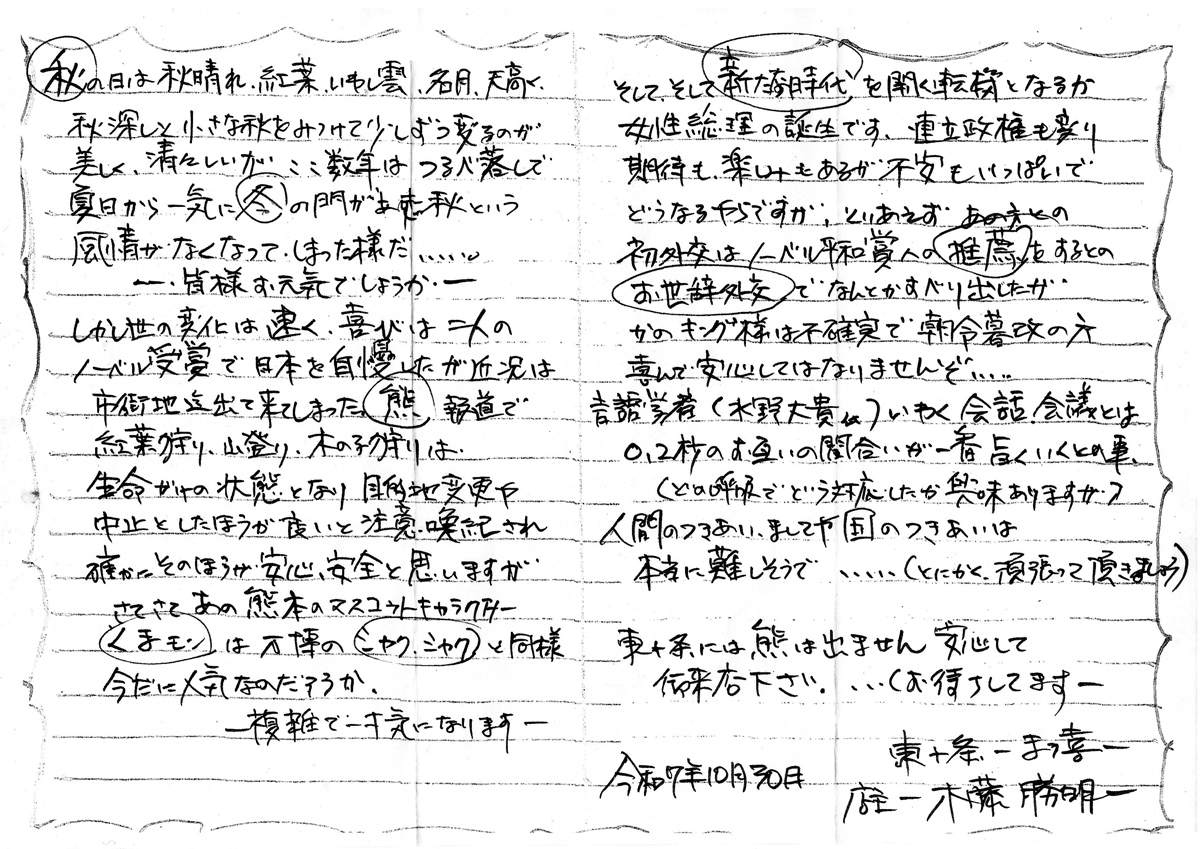 秋の日は秋晴れ、紅葉、いわし雲、名月、天高く、
秋深しと小さな秋をみつけて少しずつ変るのが
美しく、清々しいが ここ数年は つるべ落しで
夏日から一気に冬の門があき秋という
風情がなくなって、しまった様だ……。
ー・皆様お元気でしょうか・ー
しかし世の変化は速く、喜びは二人の
ノーベル受賞で日本を自慢したが近況は
市街地迄出て来てしまった、熊、報道で
紅葉狩り、山登り、木の子狩りは、
生命がけの状態となり目的地変更や
中止としたほうが良いと注意喚起され
確かにそのほうが安心、安全と思いますが
さてさて あの熊本のマスコットキャラクター
くまモンは万博のミャクミャクと同様
今だに人気なのだろうか、
ー複雑で一寸気になりますー
そして、そして新たな時代を開く転機となるか
女性総理の誕生です、連立政権も変り
期待も、楽しみもあるが不安もいっぱいで
どうなるやらですが、とりあえず あの方との
初外交はノーベル平和賞への推薦をするとの
お世辞外交でなんとかすべり出したが
かのキング様は不確実で朝令暮改の方
喜んで安心してはなりませんぞ……
言語学者(水野太貴氏)いわく会話、会議とは
0,2秒のお互いの間合いが一番旨くいくとの事、
(どの呼吸でどう対応したか興味ありますが)
人間のつきあい、ましてや国のつきあいは
本当に難しそうで ……(とにかく、頑張って頂きましょう)
東十条には熊は出ません 安心して
御来店下さい。…(お待ちしてますー
東十条ーまつ喜ー
令和7年10月30日
店主ー木藤 勝明ー